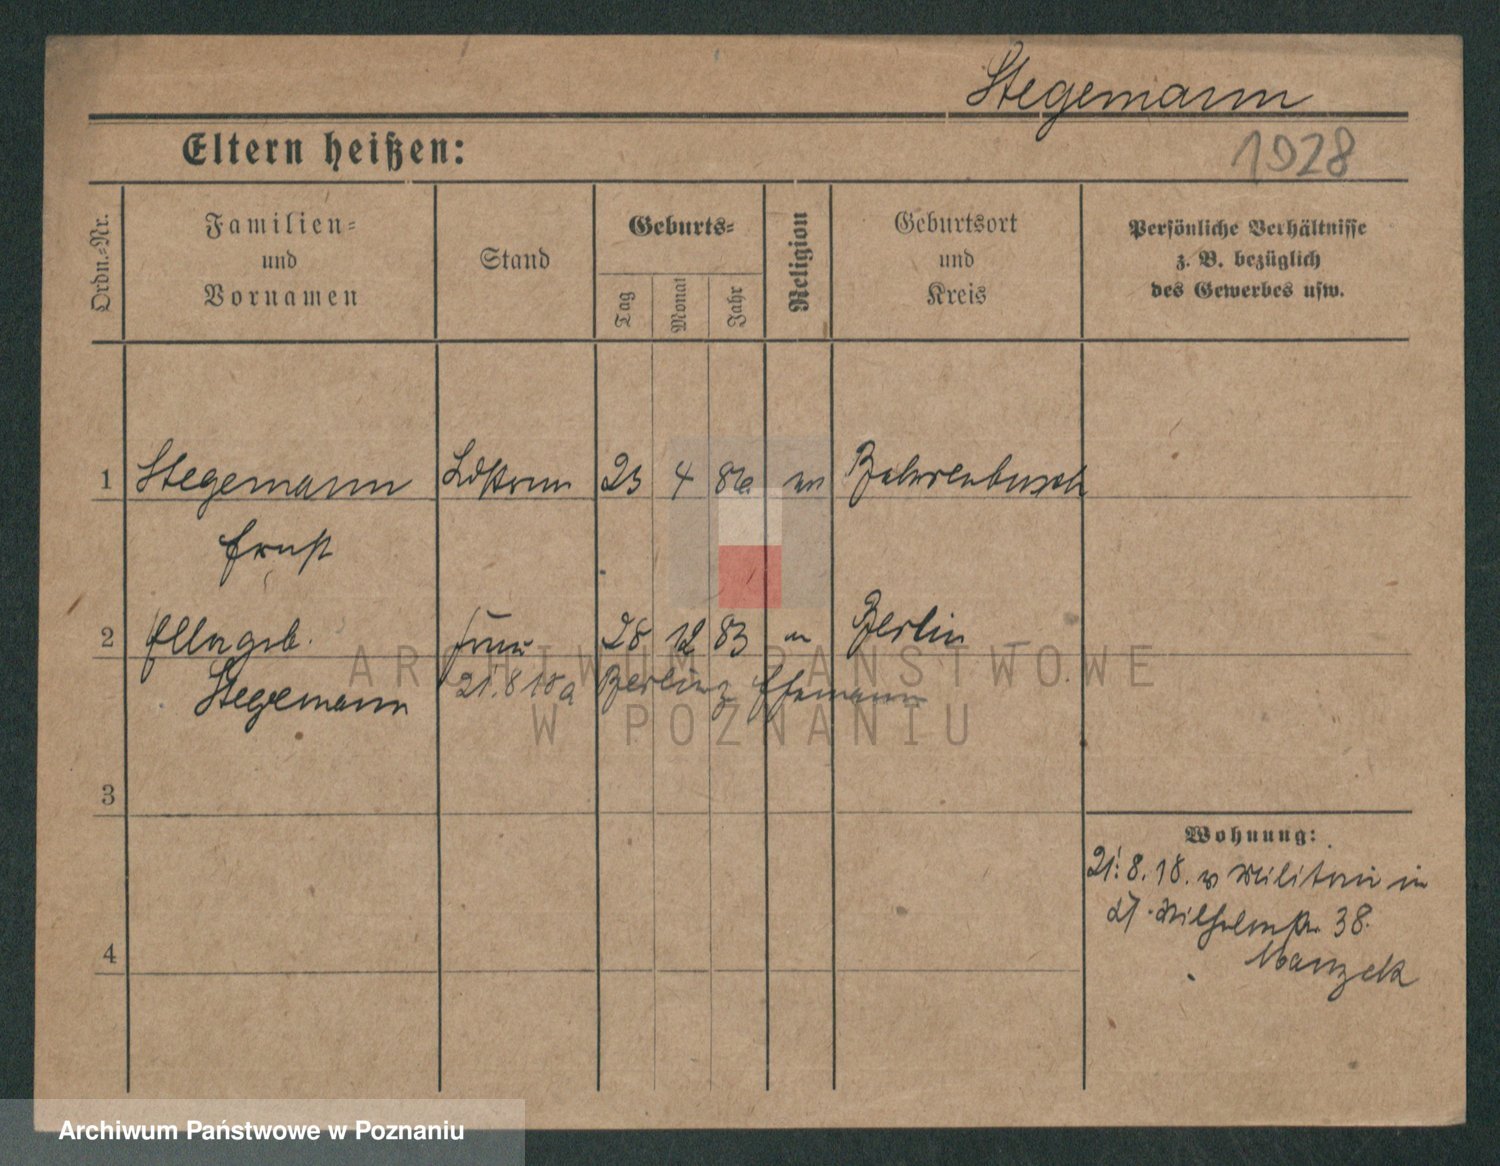 Stegemann
Eltern heißen:
1928
Ordn.-Nr.
Familien-
und
Vornamen
Stand
Geburts-
Tag
Monat
Jahr
Religion
Geburtsort
und
Kreis
Persönliche Verhältnisse
z. B. bezüglich
des Gewerbes usw.
1 Stegemann 23 4 ev Bahrenbusch
Ernst
2 Ella geb. Frau 28 12 83 Berlin
Stegemann 21.8.18 Berlin
3
Wohnung:
21.8.18. v Militär in
Wilhelmstr. 38.
4
ARCHIWUM PAŃSTWOWE
W POZNANIU
Archiwum Państwowe w Poznaniu